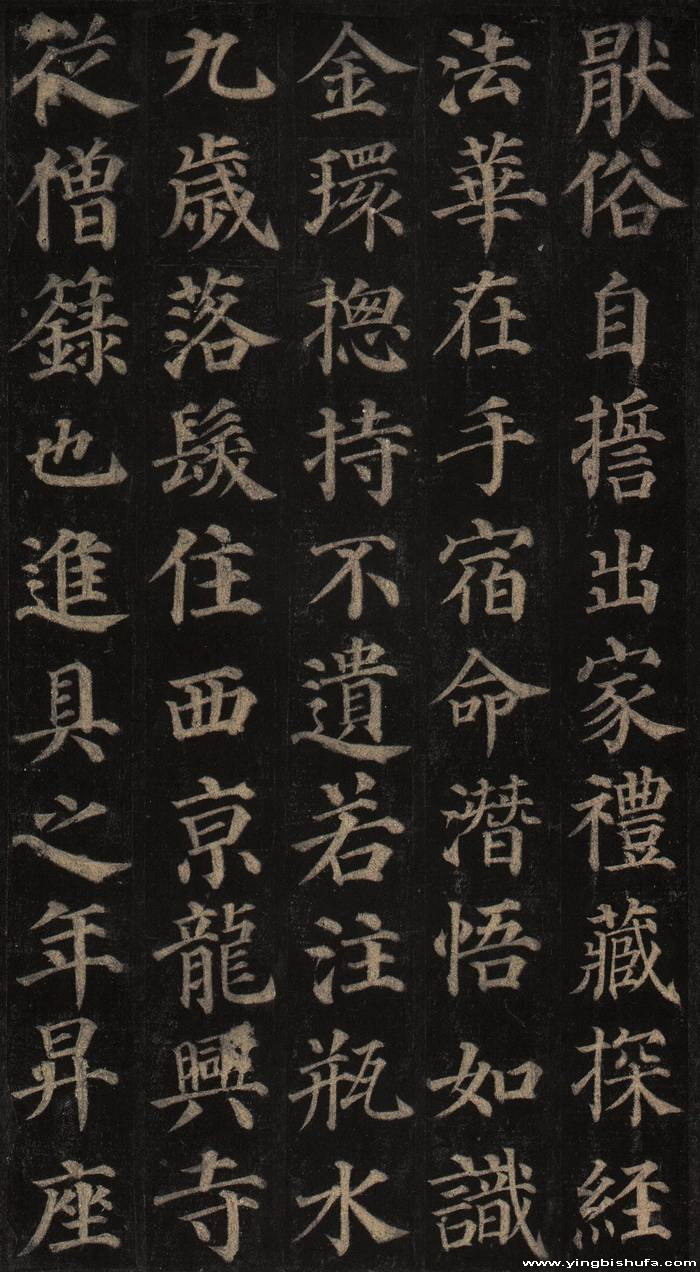 猒俗自誓出家禮藏探經
法華在手宿命潛悟如識
金環揔持不遺若注瓶水
九歲落髮住西京龍興寺
從僧籙也進具之年昇座
www.yingbishufa.com